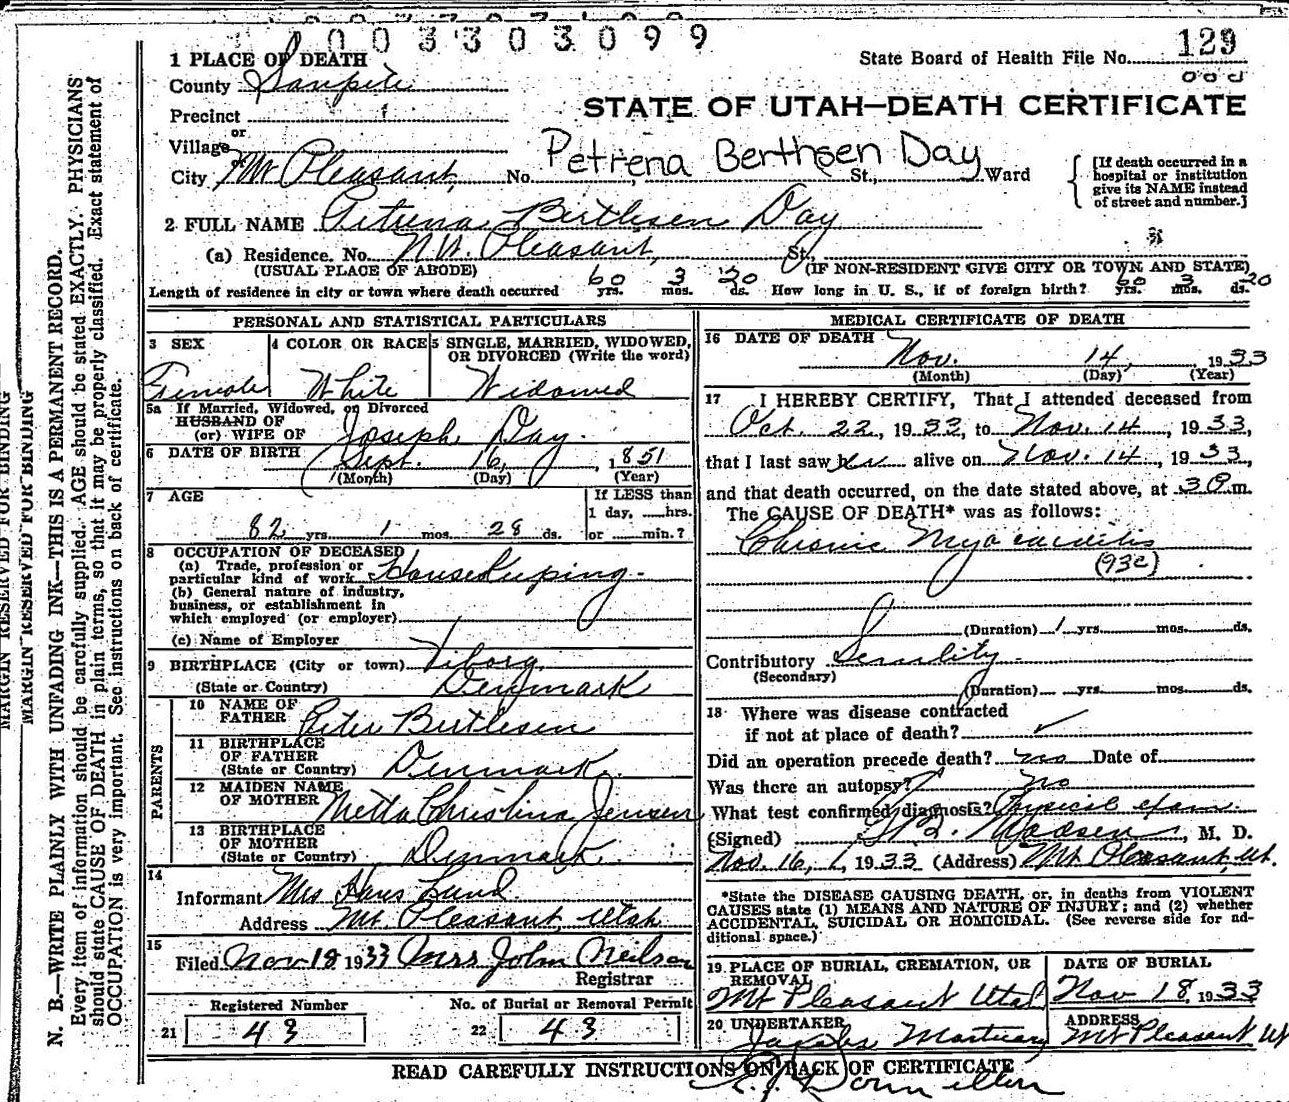 003303099
1 PLACE OF DEATH
State Board of Health File No. 129
County Sanpete
STATE OF UTAH—DEATH CERTIFICATE
Precinct
or
Village
or
City Mt Pleasant, No. St., Ward
Petrena Berthsen Day
[If death occurred in a hospital or institution give its NAME instead of street and number.]
2 FULL NAME Petrena Berthsen Day
(a) Residence. No. Mt. Pleasant, St.,
(USUAL PLACE OF ABODE) (IF NON-RESIDENT GIVE CITY OR TOWN AND STATE)
Length of residence in city or town where death occurred 60 yrs. 3 mos. 20 ds. How long in U. S., if of foreign birth? 60 yrs. 3 mos. 20 ds.
PERSONAL AND STATISTICAL PARTICULARS
3 SEX 4 COLOR OR RACE 5 SINGLE, MARRIED, WIDOWED, OR DIVORCED (Write the word)
Female White Widowed
5a If Married, Widowed, or Divorced
HUSBAND OF
(or) WIFE OF Joseph Day
6 DATE OF BIRTH Sept. 16, 1851
(Month) (Day) (Year)
7 AGE If LESS than
1 day, hrs.
82 yrs. 1 mos. 28 ds. or min.?
8 OCCUPATION OF DECEASED
(a) Trade, profession or
particular kind of work Housekeeping
(b) General nature of industry,
business, or establishment in
which employed (or employer)
(c) Name of Employer
9 BIRTHPLACE (City or town) Viborg,
(State or Country) Denmark
PARENTS
10 NAME OF
FATHER Peter Berthsen
11 BIRTHPLACE
OF FATHER
(State or Country) Denmark
12 MAIDEN NAME
OF MOTHER Metta Christina Jensen
13 BIRTHPLACE
OF MOTHER
(State or Country) Denmark
14
Informant Mrs Hans Lund
Address Mt. Pleasant, Utah
15
Filed Nov 18 1933 Mrs John Neilson
Registrar
Registered Number No. of Burial or Removal Permit
21 43 22 43
MEDICAL CERTIFICATE OF DEATH
16 DATE OF DEATH
Nov. 14, 1933
(Month) (Day) (Year)
17 I HEREBY CERTIFY, That I attended deceased from
Oct. 22, 1933, to Nov. 14, 1933,
that I last saw her alive on Nov. 14, 1933,
and that death occurred, on the date stated above, at 3 P.m.
The CAUSE OF DEATH* was as follows:
Chronic Myocarditis
(93c)
(Duration) 1 yrs. mos. ds.
Contributory Senility
(Secondary)
(Duration) yrs. mos. ds.
18 Where was disease contracted
if not at place of death?
Did an operation precede death? no Date of
Was there an autopsy? no
What test confirmed diagnosis? Physical exam
(Signed) Madsen, M. D.
Nov. 16, 1933 (Address) Mt Pleasant, Ut.
*State the DISEASE CAUSING DEATH, or, in deaths from VIOLENT
CAUSES state (1) MEANS AND NATURE OF INJURY; and (2) whether
ACCIDENTAL, SUICIDAL OR HOMICIDAL. (See reverse side for ad-
ditional space.)
19 PLACE OF BURIAL, CREMATION, OR REMOVAL DATE OF BURIAL
Mt Pleasant Utah Nov 18 1933
20 UNDERTAKER ADDRESS
Jacobs Mortuary Mt Pleasant Ut
READ CAREFULLY INSTRUCTIONS ON BACK OF CERTIFICATE
MARGIN RESERVED FOR BINDING
MARGIN RESERVED FOR BINDING
N. B.—WRITE PLAINLY WITH UNFADING INK—THIS IS A PERMANENT RECORD.
Every item of information should be carefully supplied. AGE should be stated EXACTLY. PHYSICIANS
should state CAUSE OF DEATH in plain terms, so that it may be properly classified. Exact statement of
OCCUPATION is very important. See instructions on back of certificate.